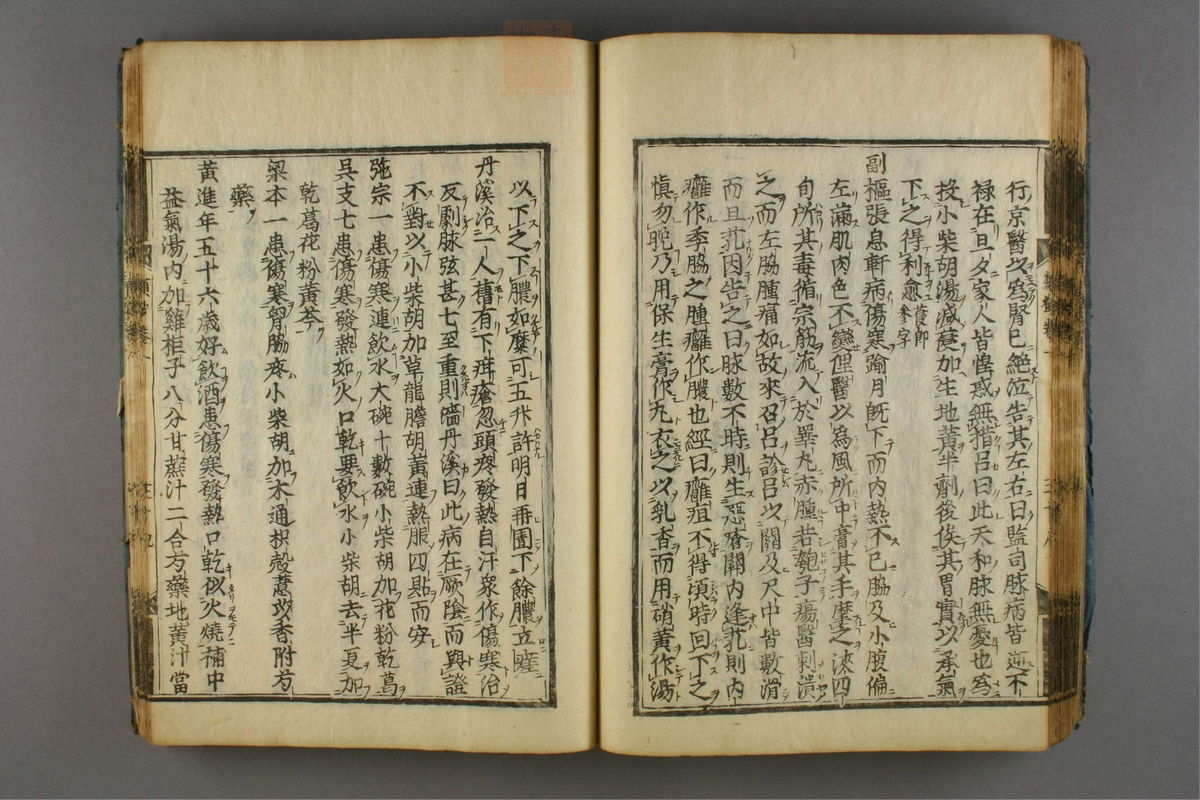 行京醫以爲腎已絶泣告其左右曰監司脉病皆逆不
祿在旦夕家人皆惶惑無措呂曰此天和脉無憂也爲
投小柴胡湯減參加生地黃半劑後俟其胃實以承氣
下之得利愈
副樞張息軒病傷寒踰月旣下而内熱不已脇及小腹偏
左滿肌肉色不變俚醫以爲風所中膏其手摩之浹四
旬所其毒循宗筋流入於睪丸赤腫若匏子瘍醫刺潰
之而左脇腫痛如故來召呂診呂以關及尺中皆數滑
而且芤因告之曰脉數不時則生惡瘡關内逢芤則内
癰作季脇之腫癰作膿也經曰癰疽不得頃時回下之
愼勿晩乃用保生膏作丸衣之以乳香而用硝黃作湯
以下之下膿如糜可五升許明日再圊下餘膿立瘥
丹溪治一人舊有下疳瘡忽頭疼發熱自汗衆作傷寒治
反劇脉弦甚七至重則濇丹溪曰此病在厥陰而與證
不對以小柴胡加草龍膽胡黃連熱服四貼而安
弛宗一患傷寒連飲水大碗十數碗小柴胡加花粉乾葛
吳支七患傷寒發熱如火口乾要飲水小柴胡去半夏加
乾葛花粉黃芩
梁本一患傷寒胷脇疼小柴胡加木通枳殻薏苡香附方
藥
黃進年五十六歲好飲酒患傷寒發熱口乾似火燒補中
益氣湯内加雞柜子八分甘蔗汁二合方藥地黃汁當